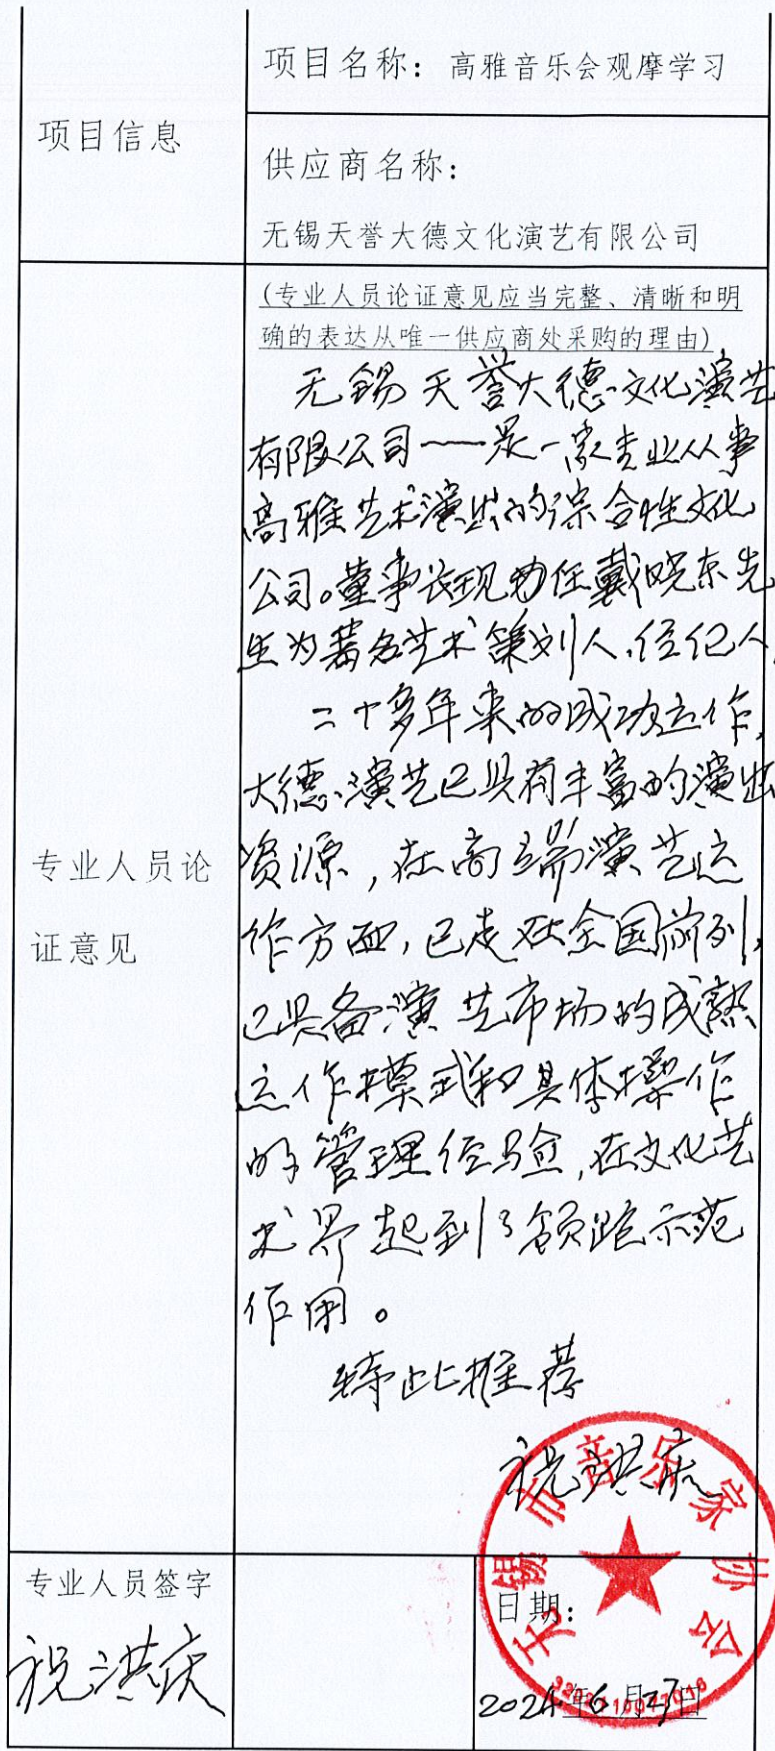 项目信息
项目名称：高雅音乐会观摩学习
供应商名称：
无锡天誉大德文化演艺有限公司
专业人员论
证意见
(专业人员论证意见应当完整、清晰和明
确的表达从唯一供应商处采购的理由)
无锡天誉大德文化演艺
有限公司——是一家专业从事
高雅艺术演出的综合性文化
公司。董事长现为任戴晓东先
生为著名艺术策划人、经纪人。
二十多年来的成功运作，
大德演艺已具有丰富的演出
资源，在高端演艺运
作方面，已走在全国前列，
已具备演艺市场的成熟
运作模式和具体操作
的管理经验，在文化艺
术界起到了领跑示范
作用。
特此推荐
祝洪庆
无锡市音乐家协会
专业人员签字
祝洪庆
日期：
2024年6月27日